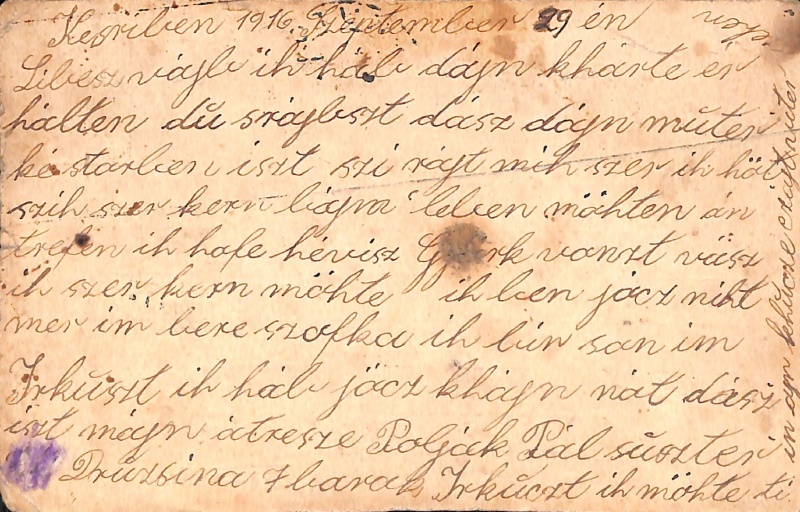 Kesriben 1916 Szeptember 29 én
Libesz vájb ih háb dájn khárte er
hálten du srájbszt dász dájn muter
ke starben iszt szi rájt mih szer ih hät
szih szer kern bájm leben möhten án
trefen ih hofe hévisz Györk vonzt vász
ih szer kern möhte ih ben jäcz niht
mer im bereszofka ih bin son im
Irkuszt ih háb jäcz khájn nát dász
iszt májn átresze Polják Pál suszter
Druzsina 7 barak Irkuczt ih möhte di
in ájn khurcze czájt